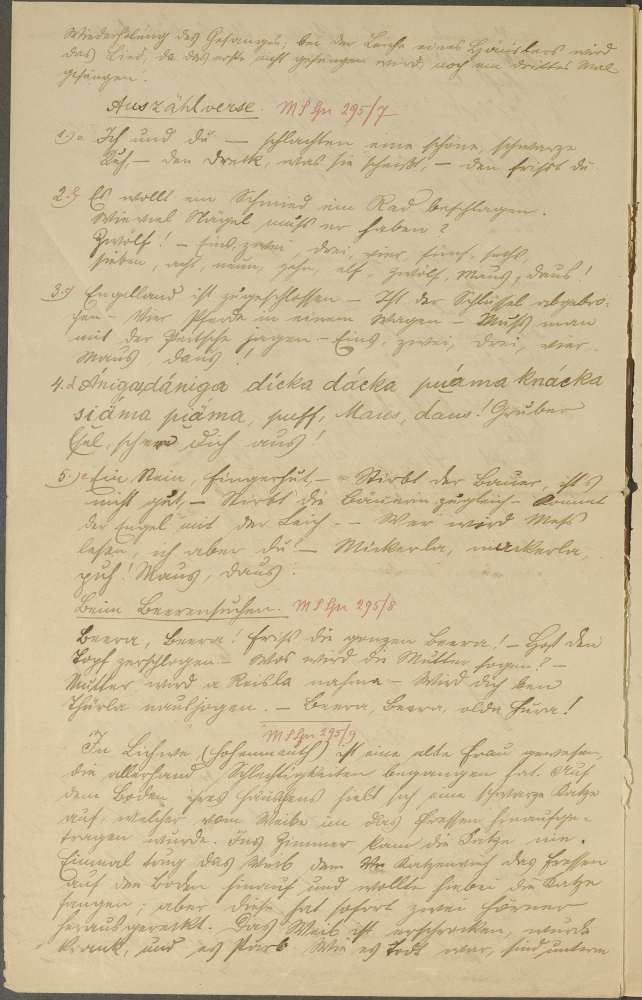 Wiederholung des Gesanges; bei der Leiche eines Häuslers wird
das Lied, da das erste nicht gesungen wird, noch ein drittes Mal
gesungen.
Auszählverse. MSGn 295/7
1.) a Ich und du — schlachten eine schöne, schwarze
Kuh, — den Dreck, was sie scheißt, — den frißt du
2. b) Es wollt ein Schmied ein Rad beschlagen.
Wieviel Nägel muß er haben?
Zwölf! — Eins, zwei, drei, vier, fünf, sechs,
sieben, acht, neun, zehn, elf, zwölf, Maus, daus!
3. c) Engelland ist zugeschlossen — Ist der Schlüssel abgebro-
chen — Vier Pferde in einem Wagen — Muß man
mit der Peitsche jagen — Eins, zwei, drei, vier
Maus, daus!
4. d Ánigadániga dícka dácka puáma knácka
siáma piáma, puff, Maus, daus! Gruber
Esel, scher Dich aus!
5.) e Ein Stein, Fingerhut, — Stirbt der Bauer, ist's
nicht gut, — Stirbt die Bäuerin zugleich — Kommt
der Engel mit der Leich. — Wer wird Meß
lesen, ich aber du? — Mickerla, mackerla,
puh! Maus, daus.
Beim Beerensuchen. MSGn 295/8
Beera, Beera! Friß die ganzen Beera! — Host den
Topf zerschlogen — Wos wird die Mutter sogen? —
Mutter wird a Reisla nahma — Wird dich ben
Thürla nausjogen. — Beera, Beera, olda Hura!
MSGn 295/9
In Lichwe (Hohenmauth) ist eine alte Frau gewesen,
die allerhand Schlechtigkeiten begangen hat. Auf
dem Boden ihres Häuschens hielt sich eine schwarze Katze
auf, welcher vom Weibe im das Fressen hinaufge-
tragen wurde. Ins Zimmer kam die Katze nie.
Einmal trug das Weib dem Katzenvieh das Fressen
auf den Boden hinauf und wollte hiebei die Katze
fangen; aber diese hat sofort zwei Hörner
herausgereckt. Das Weib ist erschrocken, wurde
krank, und es starb. Wie es todt war, sind unterm